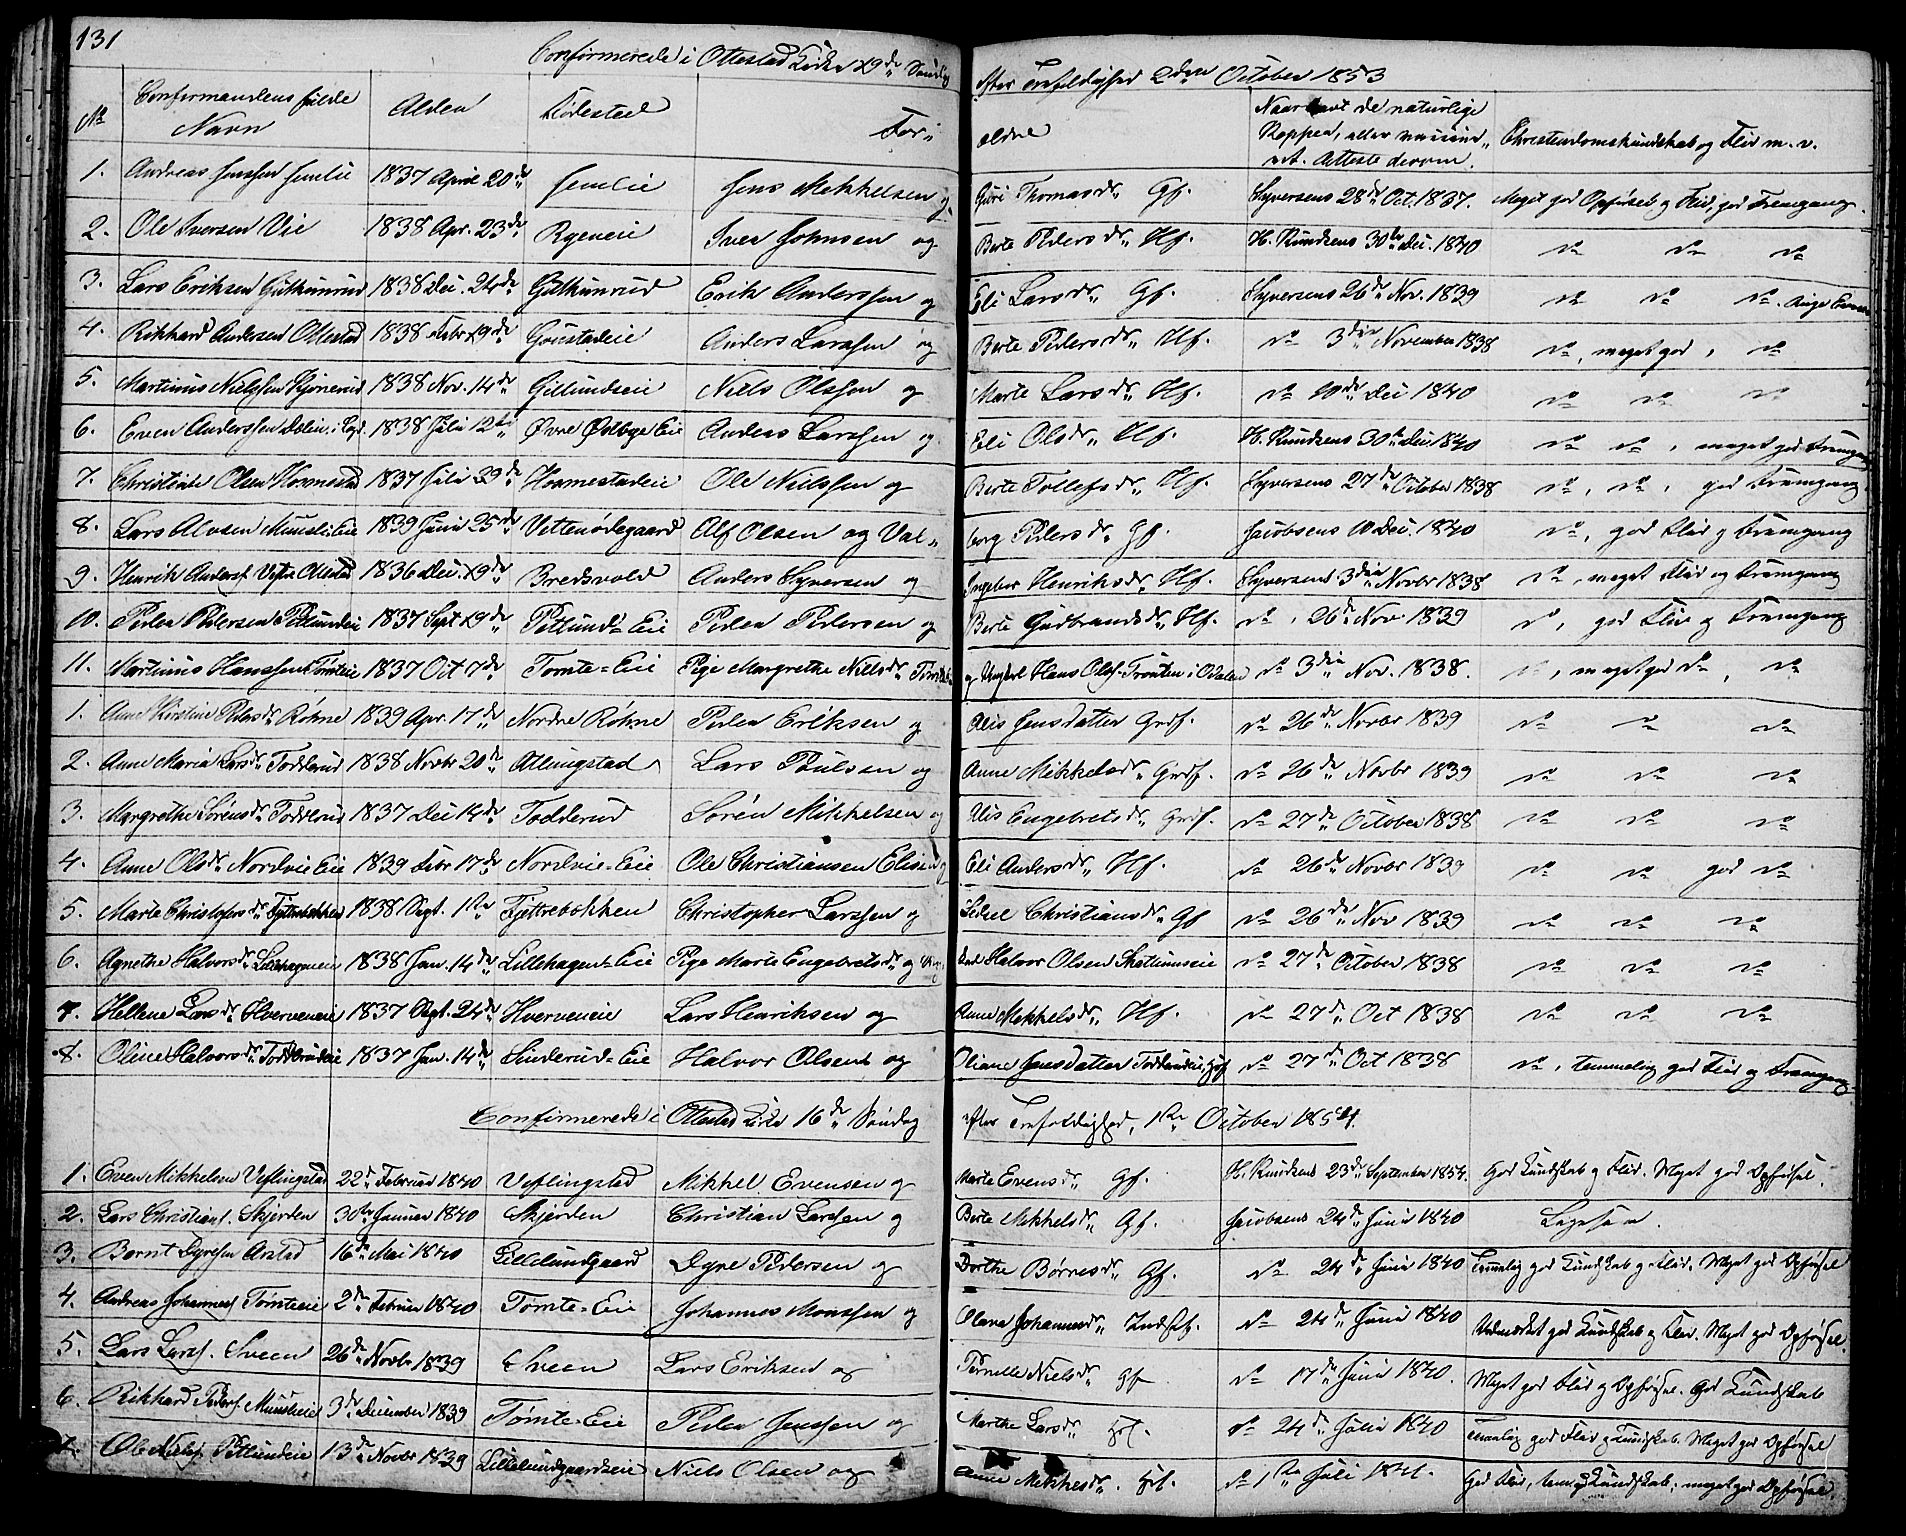 131
Confirmerede i Ottestad Kirke 19de Søndag efter Trefoldighed 2den October 1853
No Confirmandens fulde Navn Alder Fødested For- ældre Naar havt de naturlige Kopper, eller vaccineret. Attest derom. Christendomskundskab og Flid m. v.
1. Andreas Jenssen Jemlie 1837 April 20de Jemlie Jens Mikkelsen og Guri Thomasdr. Gf. Syversens 28de Oct. 1837. Meget god Opførsel og Flid, god Fremgang.
2. Ole Iversen Vie 1838 Apr. 23de Ryeneie Iver Johnsen og Berte Pedersdr. Hf. H. Knudsens 30te Dec. 1840 do do do
3. Lars Eriksen Gulkunrud 1838 Dec. 24de Gulkunrud Erik Anderssen og Eli Larsdr. Gf. Syversens 26de Nov. 1839 do do do.
4. Rikhard Andersen Ottestad 1838 Febr 19de Goustadeie Anders Larssen og Berte Pedersdr. Hf. do 3die November 1838 do, meget god, do
5. Martinus Nielssen 1838 Nov. 14de Gillundseie Niels Olssen og Marte Larsdr. Hf. do 10de Dec 1840 do do do
6. Even Anderssen 1838 Juli 12te Øvre Eie Anders Larssen og Eli Olsdr. Hf. H. Knudsens 30te Dec 1840 do do, meget god Fremgang
7. Christian Olsen Hommestad 1837 Juli 29de Hommestadeie Ole Nielssen og Berte Tollefsdr. Hf. Syversens 27de October 1838 do, do, god Fremgang
8. Lars Alvsen Munsli Eie 1839 Juni 25de Vettenødegaard Alf Olsen og Val- borg Pedersdr. Gf. Jacobsens 10 Dec. 1840 do, god Flid og Fremgang
9. Henrik Andersf. Ottestad 1836 Dec. 19de Bredsvold Anders Syversen og Ingebor Henriksdr. Hf. Syversens 3die Novbr 1838 do, meget Flid og Fremgang
10. Peder Pedersen Petlundeie 1837 Sept 19de Petlund-Eie Peder Pedersen og Berte Gudbrandsdr. Hf. do, 26de Nov 1839 do, god Flid og Fremgang
11. Martinus Hanssen Tømteie 1837 Oct 7de Tomte-Eie Pige Margrethe Nielsdr. og Ungkarl Hans Olsf. i Odalen do 3die Nov. 1838. do, meget god do, do
1. Anne Kirstine Pedersdr. Røhne 1839 Apr. 17de Nordre Røhne Peder Eriksen og Alis Jensdatter Grdf. do 26de Novbr 1839 do do do
2. Anne Maria Larsdr. Todderud 1838 Novbr 20de Atlungstad Lars Poulsen og Anne Mikkelsdr. Grdf. do 26de Novbr 1839 do do do
3. Margrethe Sørensdr. Todderud 1837 Dec 14de Todderud Sørén Mikkelsen og Alis Engebretsdr. Grdf. do 27de October 1838 do do do
4. Anne Olsdr. Nordvie Eie 1839 Febr 17de Nordvie-Eie Ole Christiansen og Eli Andersdr. Hf. do 26de Novbr 1839 do do god do
5. Marte Christofersdr. Fjettrebakken 1838 Sept. 1ste Fjettrebakken Christopher Larssen og Christiansdr. Gf do 26de Nov 1839 do do do
6. Agnethe Halvorsdr. Lillehageneie 1838 Jan. 14de Lillehagen-Eie Pige Marte Engebretsdr. og Halvor Olsen do 27de October 1838 do do do
7. Hellene Larsdr. Hverveneie 1837 Sept. 24de Hverveneie Lars Henriksen og Anne Mikkelsdr. Hf. do 27de Oct 1838 do do do
8. Oline Halvorsdr. Todderudeie 1837 Jan. 14de Sinderud-Eie Halvor Olsen og Oliane Jensdatter do 27de Oct 1838 do, temmelig god Flid og Fremgang
Confirmerede i Ottestad Kirke 16de Søndag efter Trefoldighed, 1ste October 1854.
1. Even Mikkelsen Veflingstad 22de Februar 1840 Veflingstad Mikkel Evensen og Marte Evensdr. Gf. H. Knudsens 23de September 1854. God Kundskab og Flid. Meget god Opførsel.
2. Lars Christiansf. Skjerden 30te Januar 1840 Skjerden Christian Larssen og Berte Mikkelsdr. Gf. Jacobsens 24de Juni 1840 Ligesaa.
3. Bernt Dyresen Arstad 16de Mai 1840 Lillelundgaard Dyre Pedersen og Dorthe Børresdr. Gf. do 24de Juni 1840 Temmelig god Kundskab og Flid. Meget god Opførsel
4. Andreas Johannesf. Tømteeie 2de Februar 1840 Tømte-Eie Johannes Monssen og Olava Johannesdr. Indstf. do 24de Juni 1840 Udmærket god Kundskab og Flid. Meget god Opførsel.
5. Lars Larsf. Sveen 26de Novbr 1839 Sveen Lars Eriksen og Pernille Nielsdr. Gf do 17de Juni 1840. Meget god Flid og Opførsel. God Kundskab
6. Rikhard Pedersf. Munslieie 3de December 1839 Tømte-Eie Peder Jenssen og Marthe Larsdr. Hf. do 24de Juli 1840 Temmelig god Flid og Kundskab. Meget god Opførsel
7. Ole Nielsf. Petlundeie 13de Novbr 1839 Lillelundgaardseie Niels Olsen og Anne Mikkelsdr. Hf. do 1ste Juli 1841. God Flid, Kundskab; meget god Opførsel.